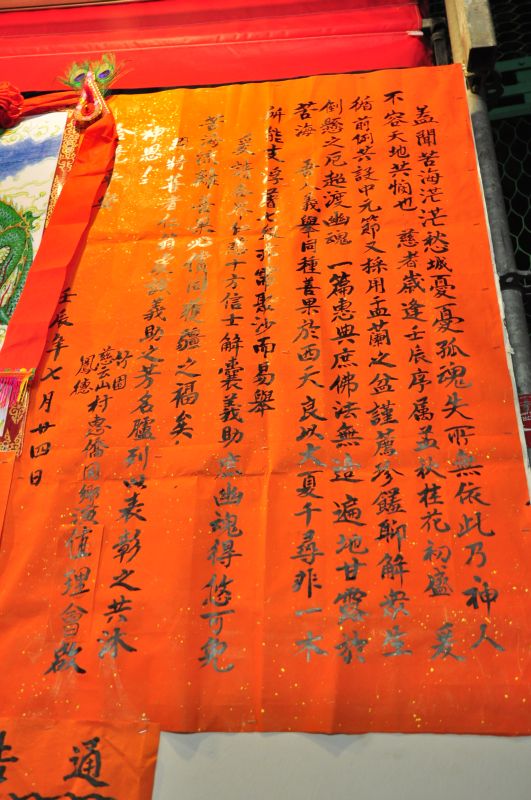 蓋聞苦海茫茫愁城憂憂孤魂失所無依此乃神人
不容天地共憫也 慈者歲逢壬辰序屬孟秋桂花初盛 爰
循前例共設中元節又採用盂蘭之盆謹薦珍饈聊解眾生
倒懸之厄超渡幽魂 一篇惠典庶佛法無邊遍地甘露於
苦海 吾人義舉同種善果於西天良以大廈千尋非一木
所能支浮屠七級非需聚沙而易舉
爰請各界仁翁十方信士解囊義助庶幽魂得慈可免
苦海 善矣必借同 疆之福矣
特 義助之芳名臚列以表彰之共沐
神恩
竹園
慈云山村惠僑回鄉 值理會啟
鳳德
壬辰年七月廿四日
通告